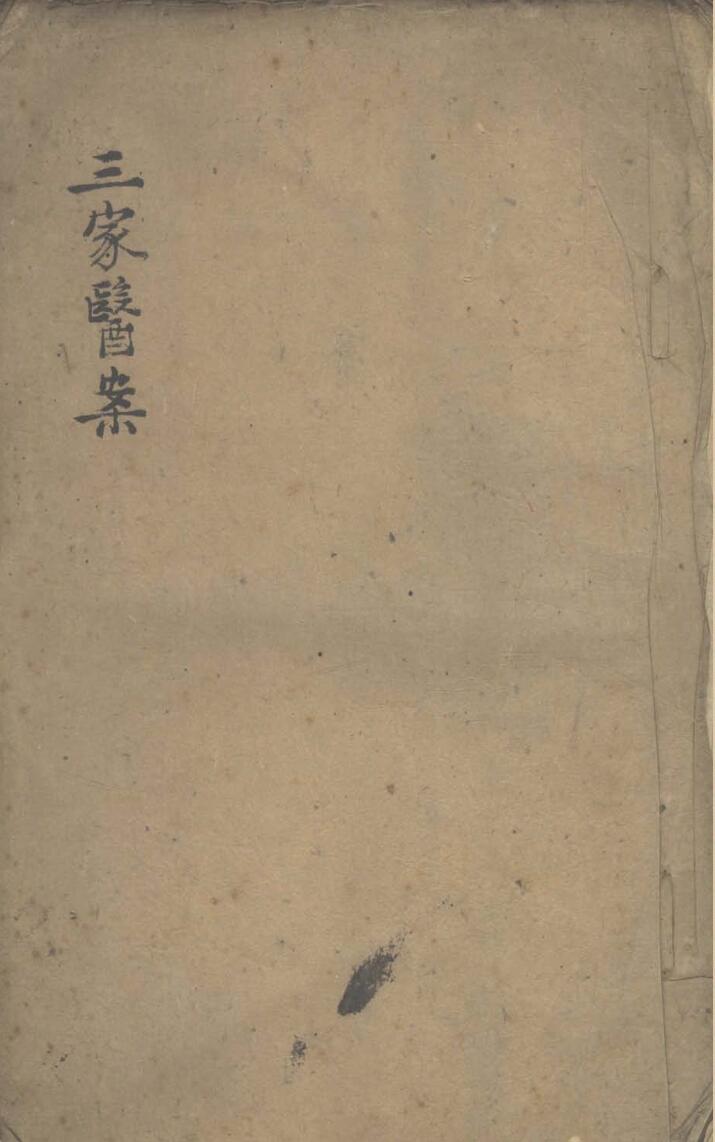 三家醫案